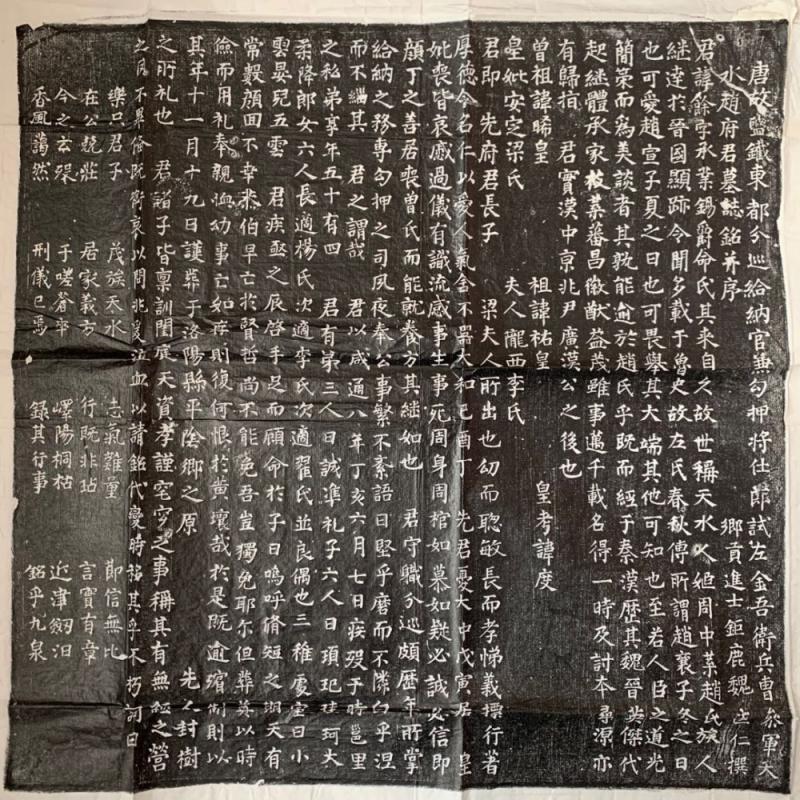 唐故鹽鐵東都分巡給納官兼勾押將仕郎試左金吾衛兵曹叅軍天
水趙府君墓誌銘并序 鄉貢進士鉅鹿魏 仁撰
君諱餘字承業錫爵命氏其來自久故世稱天水人姬周中葉趙氏旋人
継達於晉國顯跡令聞多載于魯史故左氏春秋傳所謂趙襄子冬之日
也可愛趙宣子夏之日也可畏舉其大端其他可知也至若人臣之道光
簡策而為美談者其孰能逾於趙氏乎既而經于秦漢歷其魏晉英傑代
起継體承家枝葉蕃昌徽猷益茂雖事邁千載名得一時及討本尋源亦
有歸指 君實漢中京兆尹廣漢公之後也
曾祖諱晞皇 祖諱祐皇 皇考諱度
皇妣安定梁氏 夫人隴西李氏
君即 先府君長子 梁夫人所出也幼而聰敏長而孝悌義標行著
厚德令名仁以愛人氣含不器大和己酉丁 先君憂大中戊寅居 皇
妣喪皆哀慼過儀有識流感事生事死周身周棺如慕如疑必誠必信即
顏丁之善居喪曾氏而能就養方其継如也 君守職分巡頗歷年所掌
給納之務專勾押之司夙夜奉公事繁不紊語曰堅乎磨而不隣白乎涅
而不緇其 君之謂哉 君以咸通八年丁亥六月七日疾歿于時邕里
之私弟享年五十有四 君有第三人曰誠準礼子六人曰瑣玘珪珂大
柔降郎女六人長適楊氏次適李氏次適翟氏並良偶也三稚處室曰小
雲晏兒五雲 君疾亟之辰啓手足而顧命於子曰嗚呼脩短之期天有
常數顏回不幸冉伯早亡於賢哲尚不能免吾豈獨免耶尔但葬吾以時
儉而用礼奉親恤幼事亡如存則復何恨於黃壤哉於是既逾殯制則以
其年十一月十九日護葬于洛陽縣平陰鄉之原 先人封樹
之所礼也 君諸子皆禀訓聞庭天資孝謹窀穸之事稱其有無經之營
之凡不畀儉既銜哀以問兆爰泣血以請銘代變時移其乎不朽詞曰
樂只君子 茂族天水 志氣難量 節信無比
在公兢莊 居家義方 行既非玷 言實有章
今之玄琛 于嗟眘卒 嶧陽桐枯 近津劒汨
香風藹然 刑儀已焉 錄其行事 銘乎九泉